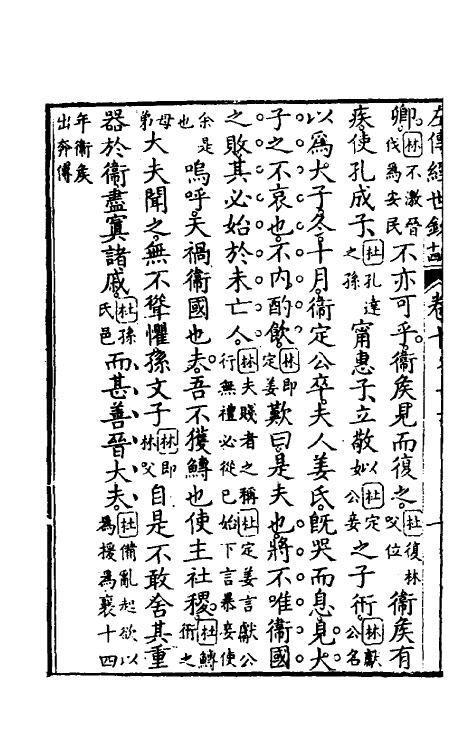 左傳經世鈔 十四 卷十
卿。林不激晉伐爲安民不亦可乎。衛矦見而復之。杜復林父位衛矦有
疾。使孔成子杜孔達之孫甯惠子立敬姒杜定公妾之子衎。林獻公名
以爲大子。冬十月。衛定公卒。夫人姜氏。旣哭而息。見大
子之不哀也。不内酌飲。林即定姜歎曰。是夫也。將不唯衛國
之敗。其必始於未亡人。林夫賤者之稱杜定姜言獻公行無禮必從已始下言暴妾使
余是也嗚呼。天禍衛國也夫。吾不獲鱄也使主社稷。杜鱄衎之
母弟大夫聞之。無不聳懼。孫文子林即林父自是不敢舍其重
器於衛。盡寘諸戚。杜孫氏邑而甚善晉大夫。杜備亂起欲以爲援爲襄十四
年衛矦出奔傳